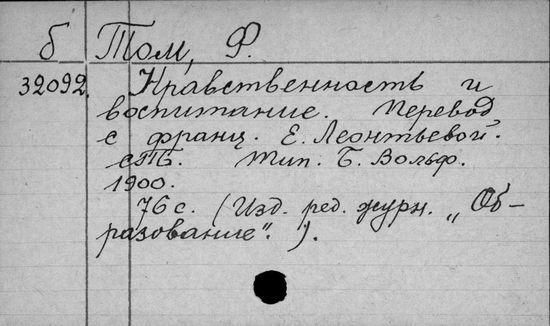 б Том, Ф.
32092. Нравственность и
воспитание. Перевод
с франц. Е. Леонтьевой.
СПБ. Тип. Б. Вольф.
1900.
76 с. (Изд. ред. журн. „Об-
разование".).